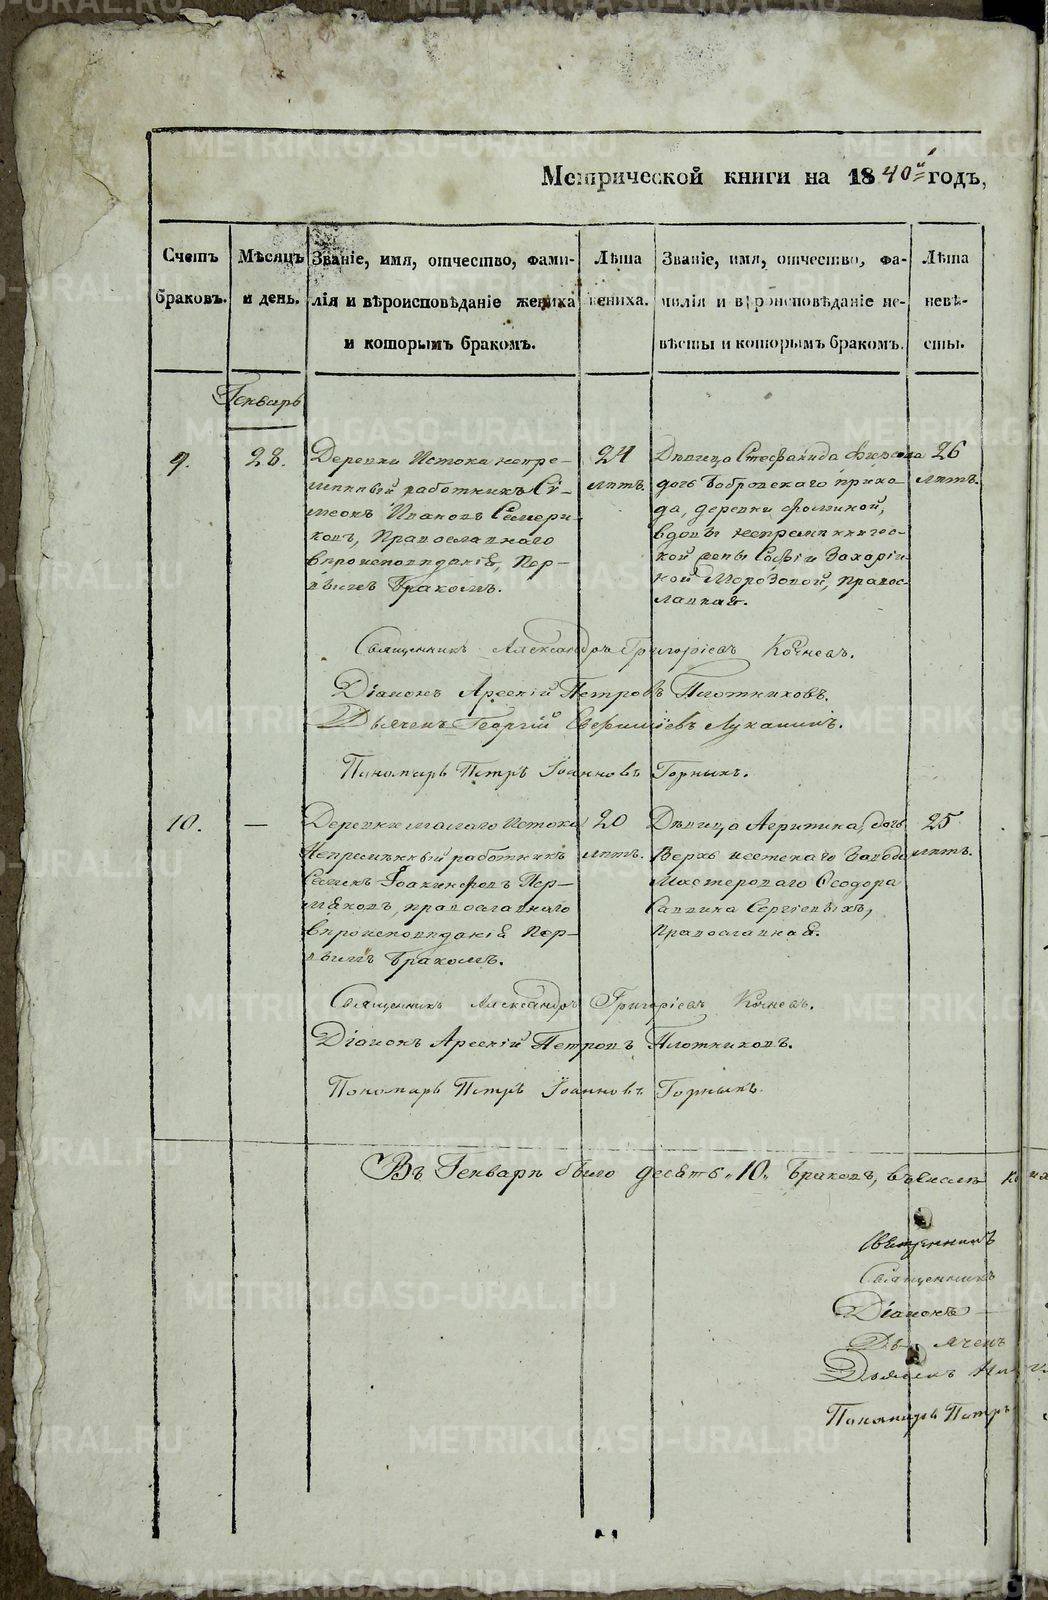 Метрической книги на 1840й годъ,
Счетъ браковъ.
Мѣсяцъ и день.
Званіе, имя, отчество, фами-
лія и вѣроисповѣданіе жениха
и которымъ бракомъ.
Лѣта
жениха.
Званіе, имя, отчество, фа-
милія и вѣроисповѣданіе не-
вѣсты и которымъ бракомъ.
Лѣта
невѣ-
сты.
Генварь
9.
28.
Деревни Истока непре-
мѣнный работникъ Си-
меонъ Ивановъ Семери-
ковъ, Православнаго
вѣроисповѣданія, пер-
вымъ бракомъ.
24
лѣтъ.
Дѣвица Стефанида Фирсова
дочь Бобровскаго прихо-
да, деревни Фоминой,
вдовы непремѣнническ-
кой жены Софіи Захаріи-
ной Морозовой, правос-
лавная.
26
лѣтъ.
Священникъ Александръ Григоріевъ Кочневъ.
Діаконъ Арсеній Петровъ Плотниковъ.
Дьячекъ Георгій Евфиміевъ Лукашинъ.
Пономарь Петръ Іоанновъ Горныхъ.
10.
—
Деревни малаго Истока
Непремѣнный работникъ
Семенъ Іоакинфовъ Пер-
мяковъ, православнаго
вѣроисповѣданія пер-
вымъ бракомъ.
20
лѣтъ.
Дѣвица Агрипина, дочь
Верхъ исетскаго завода
Мастероваго Ѳеодора
Саввина Сергіевыхъ,
Православная.
25
лѣтъ.
Священникъ Александръ Григоріевъ Кочневъ.
Діаконъ Арсеній Петровъ Плотниковъ.
Пономарь Петръ Іоанновъ Горныхъ.
Въ Генварѣ было десять "10" браковъ, въ
Священникъ
Священникъ
Діаконъ
Дьячекъ
Дьячекъ
Пономарь Петръ
METRIKI.GASO-URAL.RU